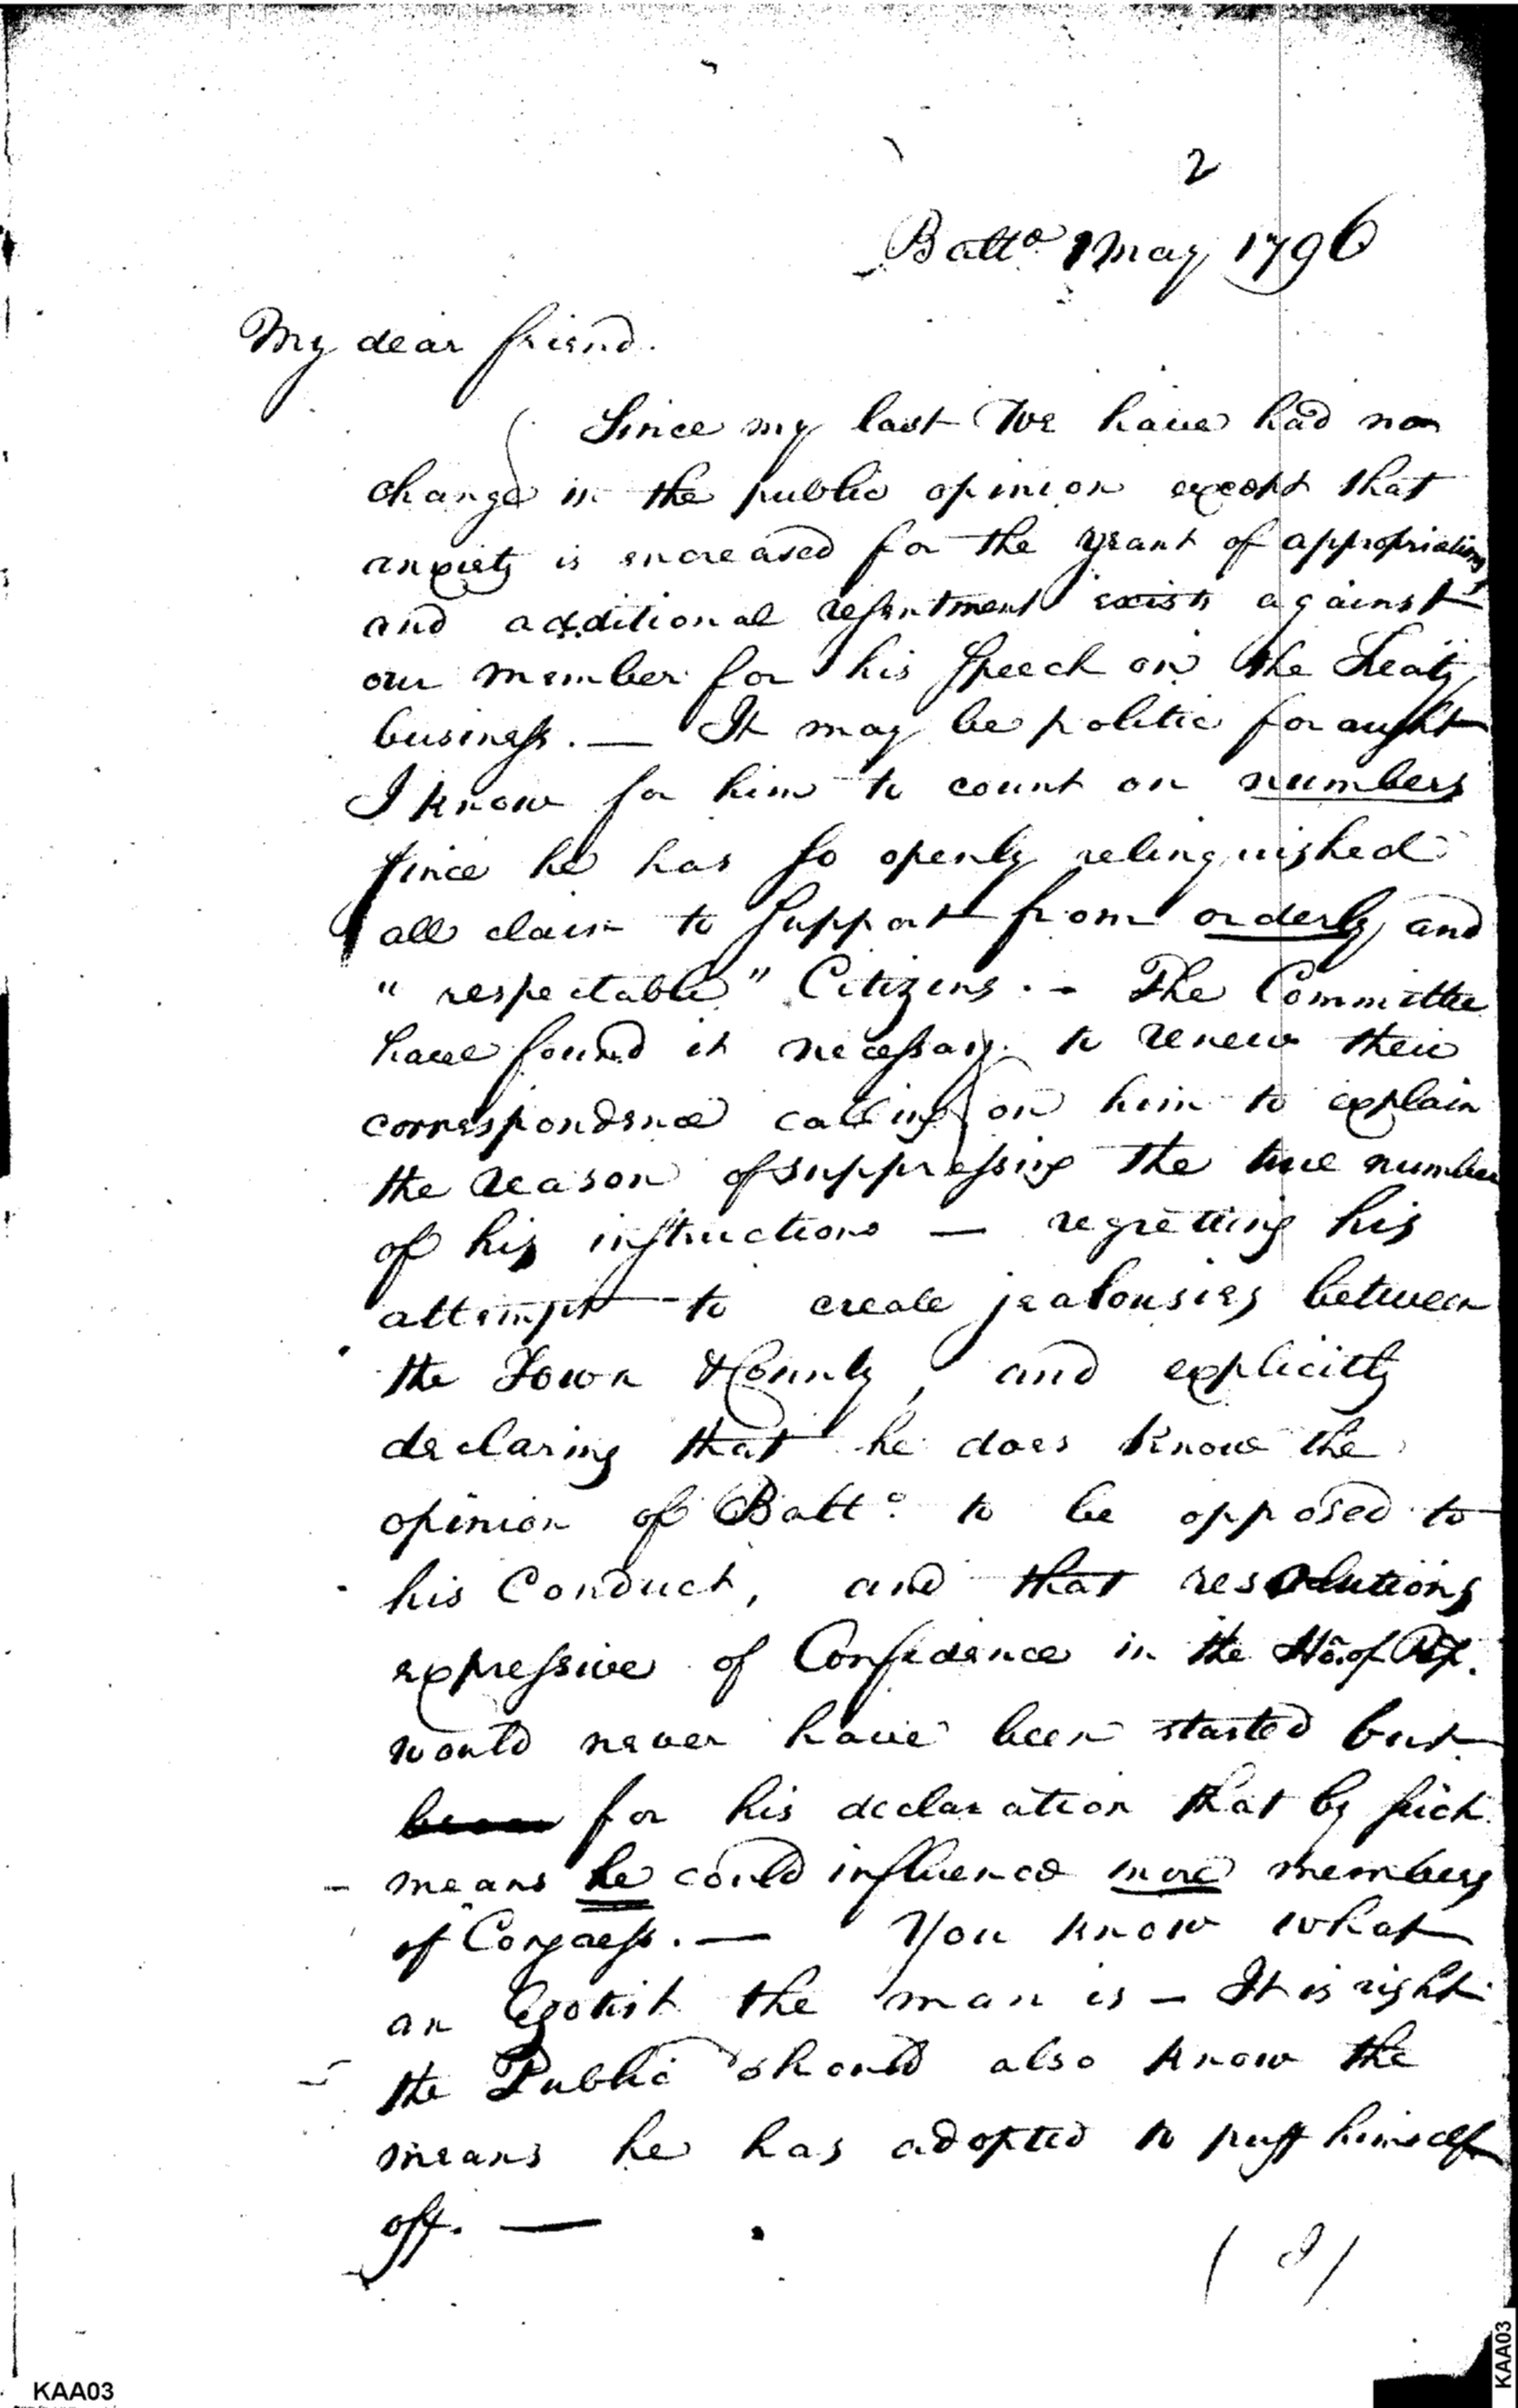 2
Balto. May 1796
My dear friend.
Since my last We have had no
change in the public opinion except that
anxiety is encreased for the grant of appropriations
and additional resentment exists against
our member for his speech on the Treaty
business. — It may be politic for aught
I know for him to count on numbers
since he has so openly relinquished
all claim to support from orderly and
"respectable" Citizens. - The Committee
have found it necessary to renew their
correspondence calling on him to explain
the reason of suppressing the true number
of his instructions — regretting his
attempt to create jealousies between
the Town & County, and explicitly
declaring that he does know the
opinion of Balto. to be opposed to
his Conduct, and that resolutions
expressive of Confidence in the Ho. of Rep.
would never have been started but
for his declaration that by such
means he could influence more members
of Congress. — You know what
an Egotist the man is — It is right
the Public should also know the
means he has adopted to puff himself
off. —
KAA03
KAA03